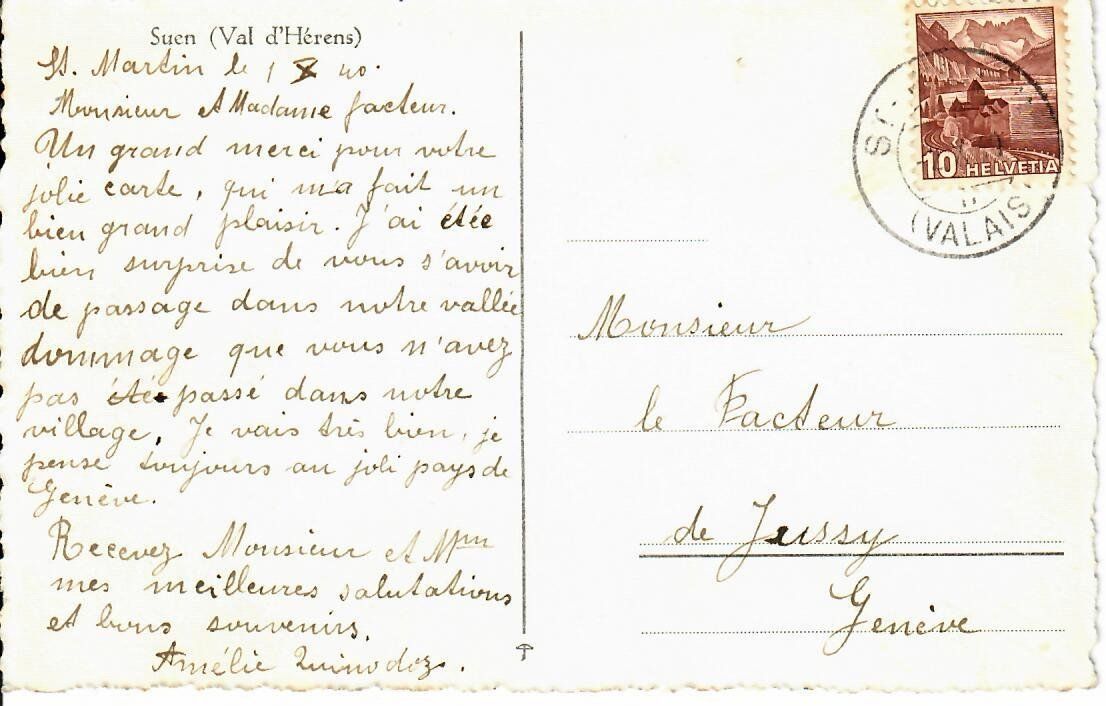 Suen (Val d'Hérens)
St. Martin le 1 X 40.
Monsieur et Madame facteur.
Un grand merci pour votre
jolie carte, qui m'a fait un
bien grand plaisir. J'ai étée
bien surprise de vous s'avoir
de passage dans notre vallée
dommage que vous n'avez
pas été passé dans notre
village. Je vais très bien, je
pense toujours au joli pays de
Genève.
Recevez Monsieur et Mme
mes meilleures salutations
et bons souvenirs.
Amélie Quinodoz.
10 HELVETIA
(VALAIS)
Monsieur
le Facteur
de Jussy
Genève